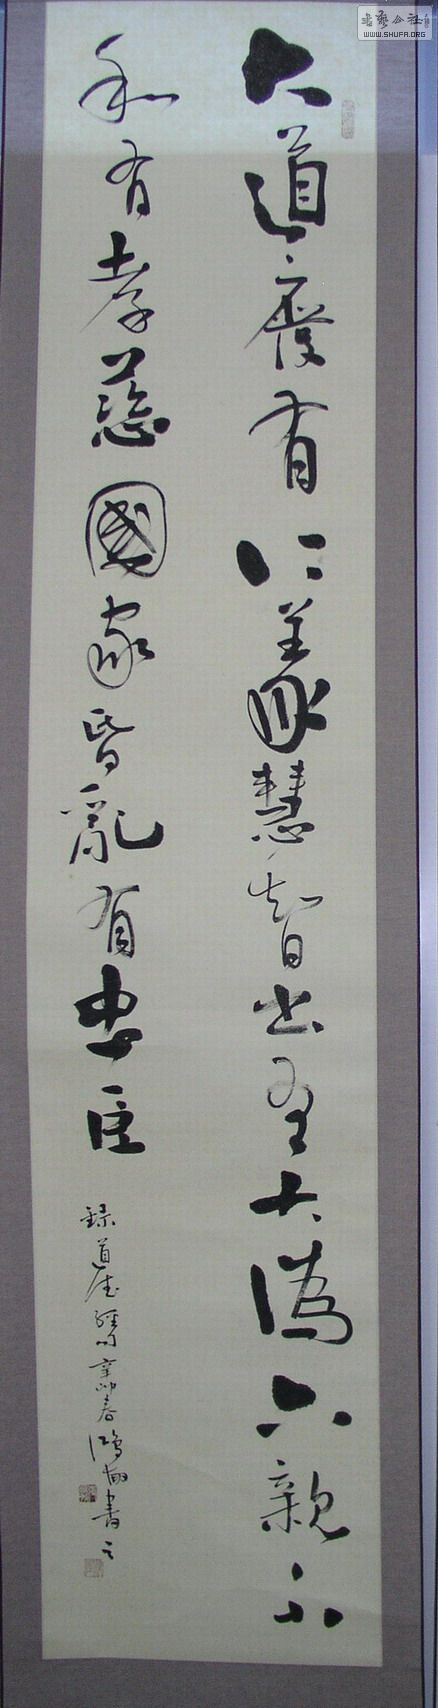 大道廢有仁義慧智出有大偽六親不
和有孝慈國家昏亂有忠臣
錄道德經句 春 書之
書藝公社
WWW.SHUFA.ORG